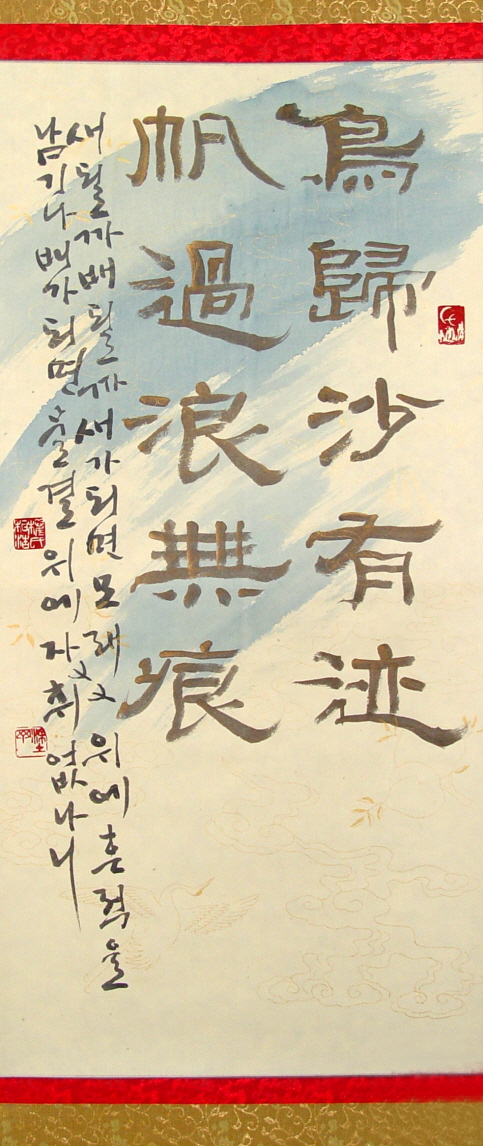 鳥歸沙有迹
帆過浪無痕
새 될까 배 될까 새가 되면 모래ㅅ 위에 흔적을
남기나 배가 되면 물결 위에 자취 없나니